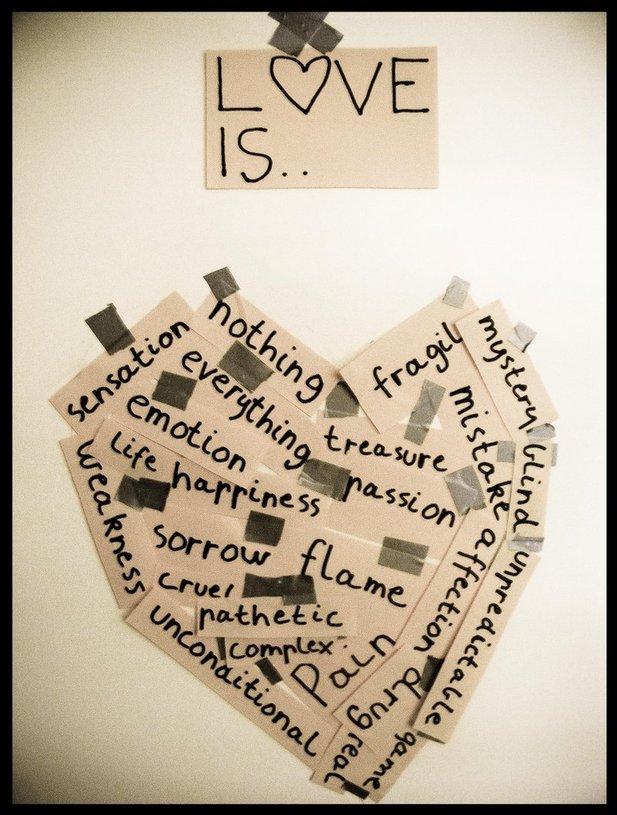 L♡VE
IS..
nothing
sensation
everything
fragil
mystery
emotion
treasure
mistake
life
happiness
passion
blind
weakness
sorrow
flame
affection
unpredictable
cruel
pathetic
complex
pain
drug
unconditional
real
game